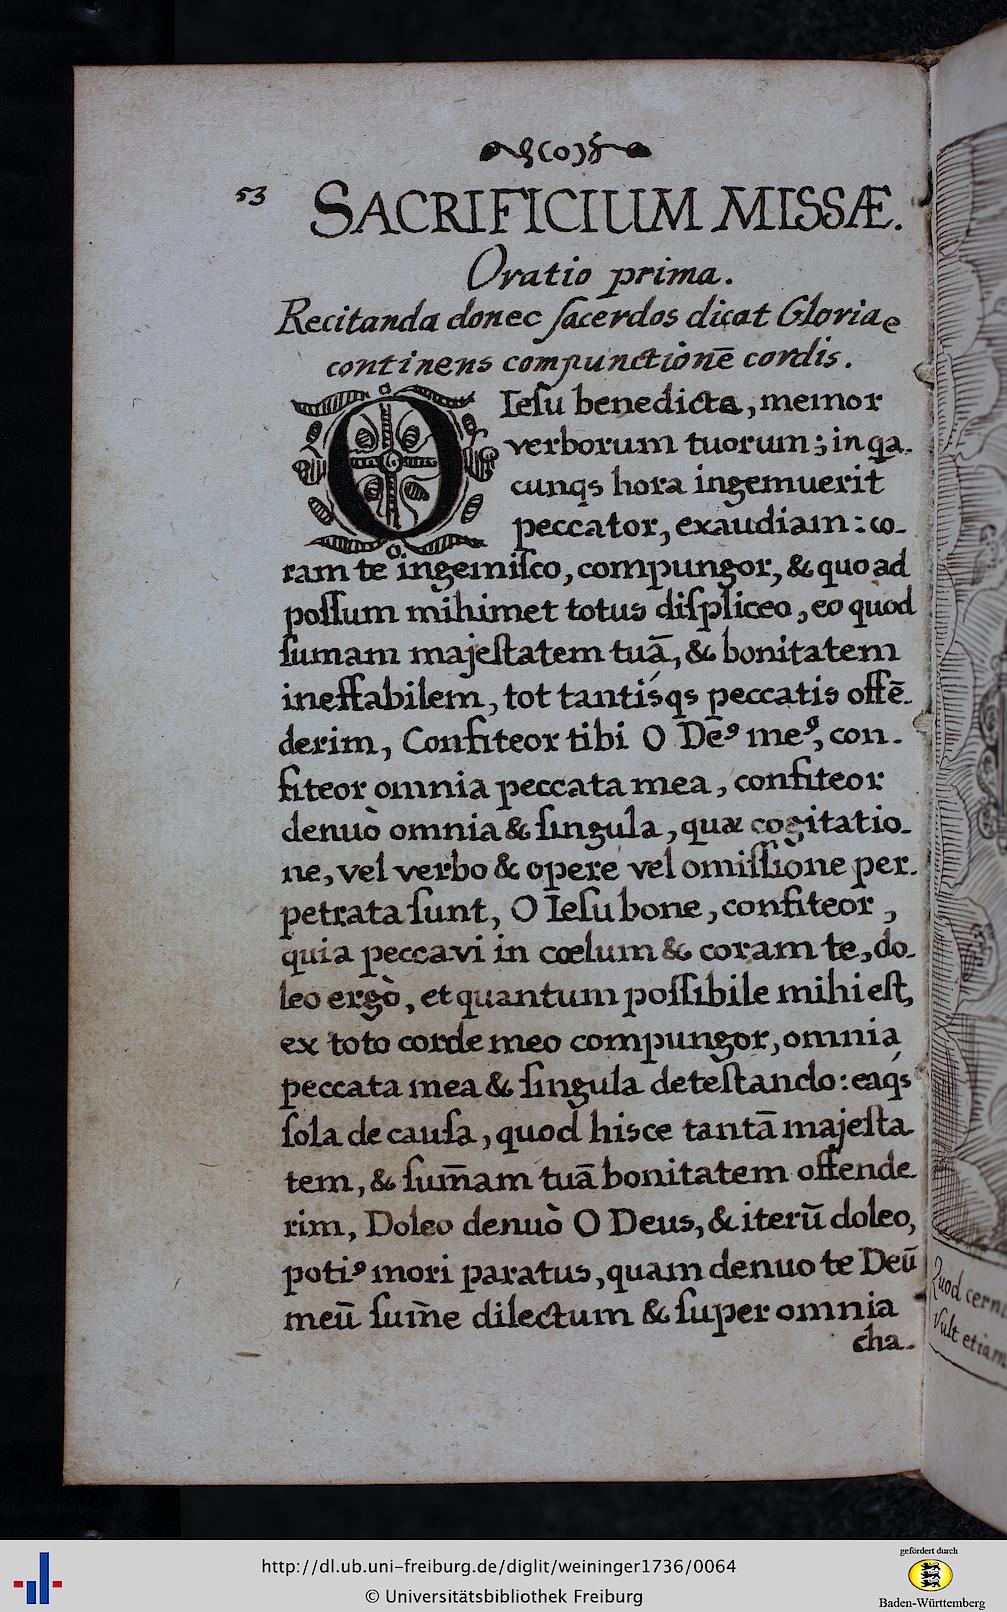 (o)
53
SACRIFICIUM MISSÆ.
Oratio prima.
Recitanda donec ſacerdos dicat Gloriae
continens compunctionē cordis.
O Ieſu benedicte, memor
verborum tuorum; in qa-
cunqs hora ingemuerit
peccator, exaudiam: co-
ram te ingemiſco, compungor, & quo ad
poſſum mihimet totus diſpliceo, eo quod
ſumam majeſtatem tuā, & bonitatem
ineffabilem, tot tantisqs peccatis offē-
derim, Confiteor tibi O Dēꝰ meꝰ, con-
fiteor omnia peccata mea, confiteor
denuò omnia & ſingula, quæ cogitatio-
ne, vel verbo & opere vel omiſſione per-
petrata ſunt, O Ieſu bone, confiteor,
quia peccavi in cœlum & coram te, do-
leo ergò, et quantum poſſibile mihi eſt,
ex toto corde meo compungor, omnia
peccata mea & ſingula deteſtando: eaqs
ſola de cauſa, quod hisce tantā majeſta-
tem, & ſum̄am tuā bonitatem offende-
rim, Doleo denuò O Deus, & iterū doleo,
potiꝰ mori paratus, quam denuo te Deū
meū ſum̄e dilectum & ſuper omnia
cha-
Quod cern
Vult etiam
http://dl.ub.uni-freiburg.de/diglit/weininger1736/0064
© Universitätsbibliothek Freiburg
gefördert durch
Baden-Württemberg